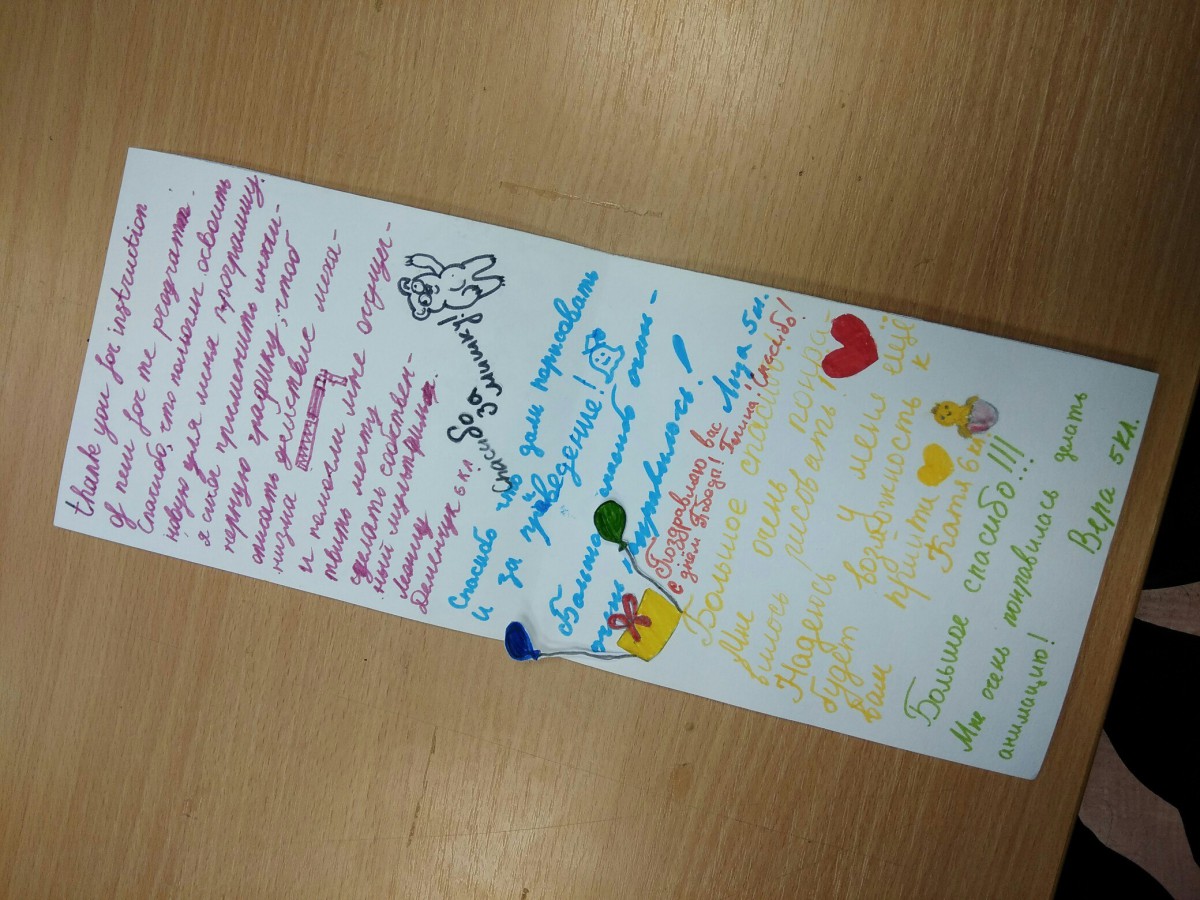 thank you for instruction
of new for me program.
Спасибо, что помогли освоить
новую для меня программу.
я смог применить инжен-
терную графику, чтоб
описать действие меха-
низма
и помогли мне осущес-
твить мечту
сделать собствен-
ный мультфильм.
Данишук 6 кл.
Спасибо за мишку!
Спасибо что дали порисовать
и за приведение!
Большое спасибо очень-
очень понравилось! Луза 5 кл.
Поздравляю вас
с днём Победы! Полина! Спасибо!
Большое спасибо!
Мне очень понра-
вилось рисовать
Надеюсь у меня ещё
будет возможность к
вам прийти
Катя 6 кл.
Большое спасибо!!!
Мне очень понравилось делать
анимацию!
Вера 5 кл.